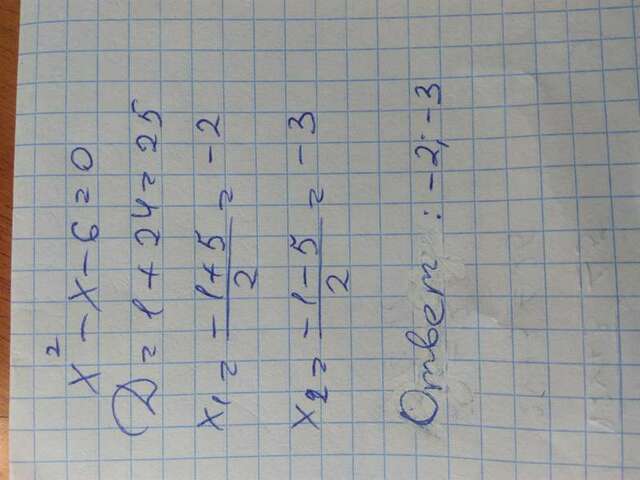 x² - x - 6 = 0
D = 1 + 24 = 25
x₁ = (-1+5)/2 = -2
x₂ = (-1-5)/2 = -3
Ответ: -2; -3